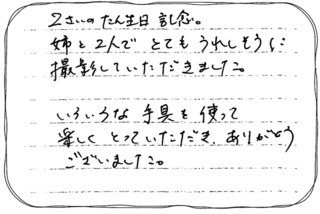 2さいのたん生日記念。
姉と2人でとてもうれしそうに
撮影していただきました。
いろいろな手具を使って
楽しくとっていただき、ありがとう
ございました。